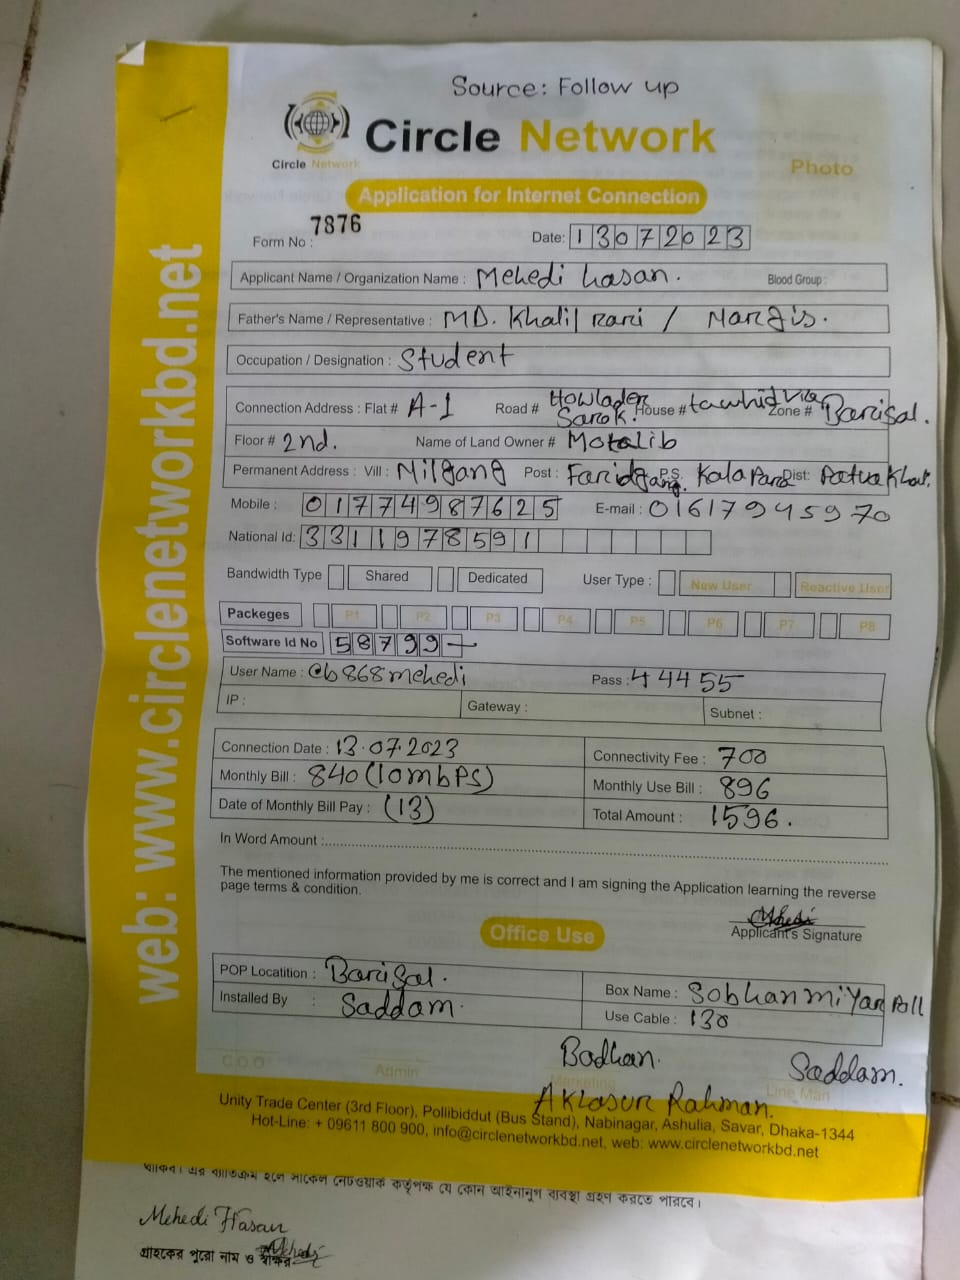 Source: Follow up
Circle Network
Circle Network
Photo
Application for Internet Connection
Form No : 7876
Date: 13072023
Applicant Name / Organization Name : Mehedi hasan. Blood Group :
Father's Name / Representative : MD. Khalil rari / Nargis.
Occupation / Designation : Student
Connection Address : Flat # A-1 Road # Howlader Sarok. House # tawhid Vila Zone # Barisal.
Floor # 2nd. Name of Land Owner # Motalib
Permanent Address : Vill : Milgang Post : Faridgang. P.S. Kala Para Dist: Patuakhali.
Mobile : 01774987625 E-mail : 01617945970
National Id: 3311978591
Bandwidth Type Shared Dedicated User Type : New User Reactive User
Packeges P1 P2 P3 P4 P5 P6 P7 P8
Software Id No 58799
User Name : @b868mehedi Pass : 44455
IP : Gateway : Subnet :
Connection Date : 13.07.2023 Connectivity Fee : 700
Monthly Bill : 840 (10mbps) Monthly Use Bill : 896
Date of Monthly Bill Pay : (13) Total Amount : 1596.
In Word Amount :
The mentioned information provided by me is correct and I am signing the Application learning the reverse
page terms & condition.
Mehedi
Applicant's Signature
Office Use
POP Locatition : Barisal. Box Name : Sobhanmiyar Poll
Installed By : Saddam. Use Cable : 130
Badhan. Saddam.
C O O Admin Marketing Line Man
Aklasur Rahman.
Unity Trade Center (3rd Floor), Pollibiddut (Bus Stand), Nabinagar, Ashulia, Savar, Dhaka-1344
Hot-Line: + 09611 800 900, info@circlenetworkbd.net, web: www.circlenetworkbd.net
web: www.circlenetworkbd.net
থাকিব। এর ব্যতিক্রম হলে সার্কেল নেটওয়ার্ক কর্তৃপক্ষ যে কোন আইনানুগ ব্যবস্থা গ্রহণ করতে পারবে।
Mehedi Hasan
Mehedi
গ্রাহকের পুরো নাম ও স্বাক্ষর